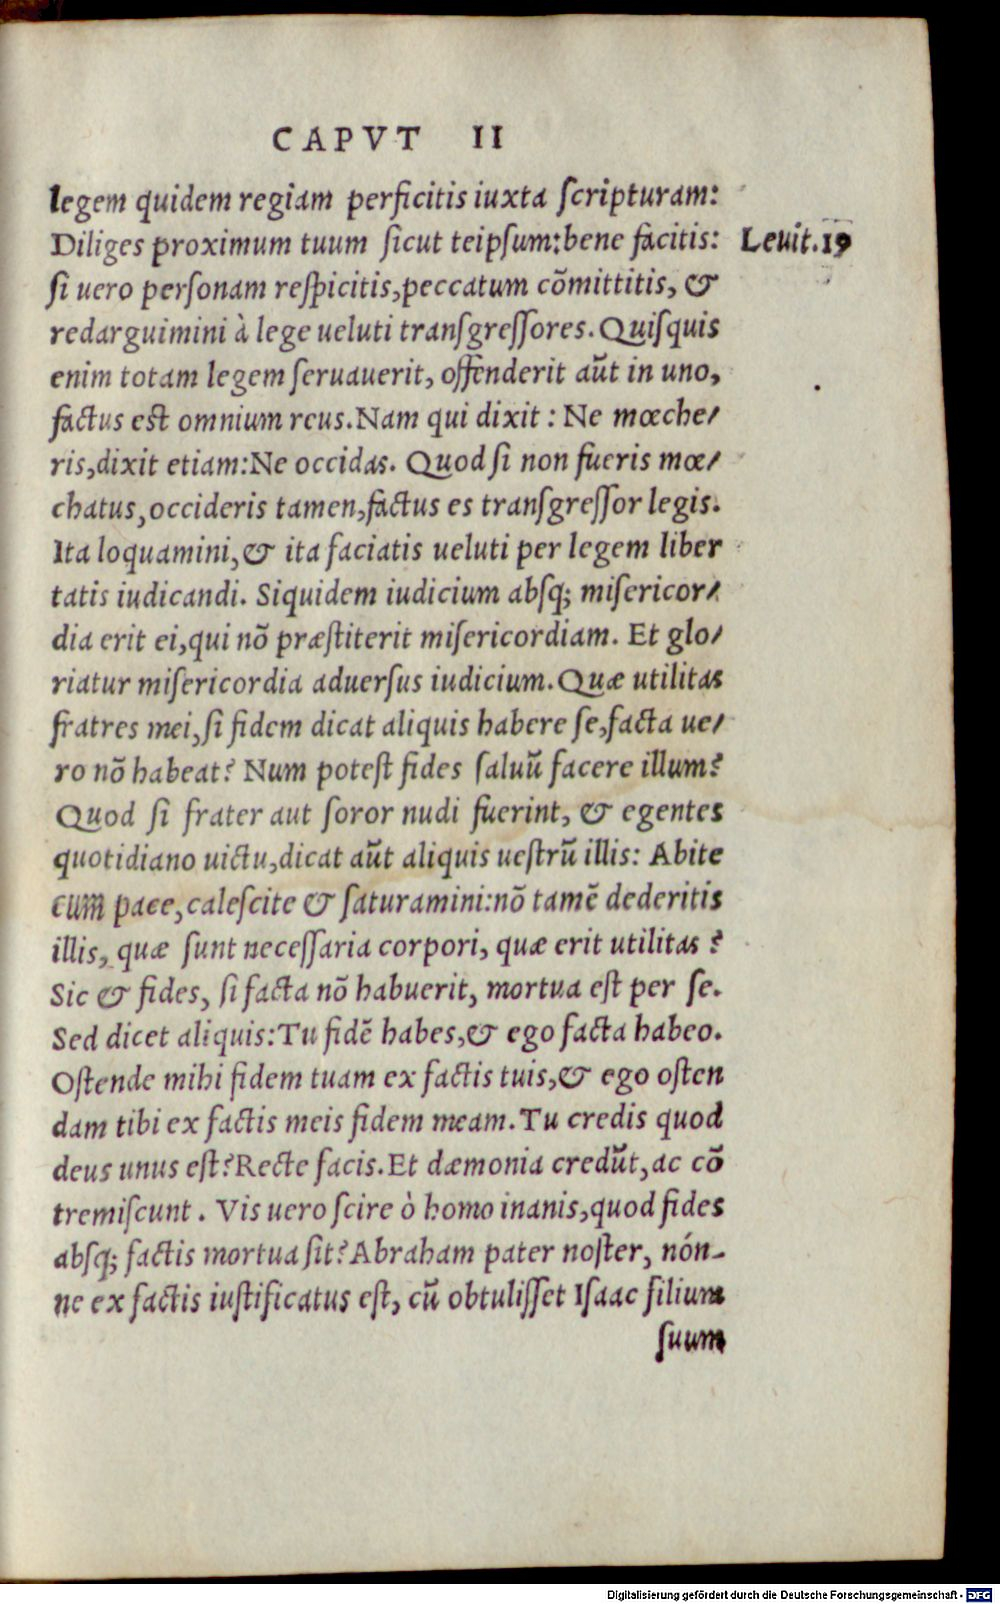 CAPVT II
legem quidem regiam perficitis iuxta ſcripturam:
Diliges proximum tuum ſicut teipſum:bene facitis: Leuit.19
ſi uero perſonam reſpicitis,peccatum cõmittitis, &
redarguimini à lege ueluti tranſgreſſores. Quiſquis
enim totam legem ſeruauerit, offenderit aũt in uno,
factus est omnium reus. Nam qui dixit : Ne mœche/
ris,dixit etiam:Ne occidas. Quod ſi non fueris mœ/
chatus,occideris tamen,factus es tranſgreſſor legis.
Ita loquamini,& ita faciatis ueluti per legem liber
tatis iudicandi. Siquidem iudicium abſq; miſericor/
dia erit ei,qui nõ præſtiterit miſericordiam. Et glo/
riatur miſericordia aduerſus iudicium. Quæ utilitas
fratres mei,ſi fidem dicat aliquis habere ſe,facta ue/
ro nõ habeat? Num potest fides ſaluũ facere illum?
Quod ſi frater aut ſoror nudi fuerint, & egentes
quotidiano uictu,dicat aũt aliquis ueſtrũ illis: Abite
cum pace,caleſcite & ſaturamini:nõ tamẽ dederitis
illis, quæ ſunt neceſſaria corpori, quæ erit utilitas ?
Sic & fides, ſi facta nõ habuerit, mortua eſt per ſe.
Sed dicet aliquis:Tu fidẽ habes,& ego facta habeo.
Oſtende mihi fidem tuam ex factis tuis,& ego oſten
dam tibi ex factis meis fidem meam. Tu credis quod
deus unus eſt?Recte facis.Et dæmonia credũt,ac cõ
tremiſcunt . Vis uero ſcire ò homo inanis,quod fides
abſq; factis mortua ſit? Abraham pater noſter, nón-
ne ex factis iuſtificatus eſt, cũ obtuliſſet Iſaac filium
ſuum
Digitalisierung gefördert durch die Deutsche Forschungsgemeinschaft - DFG